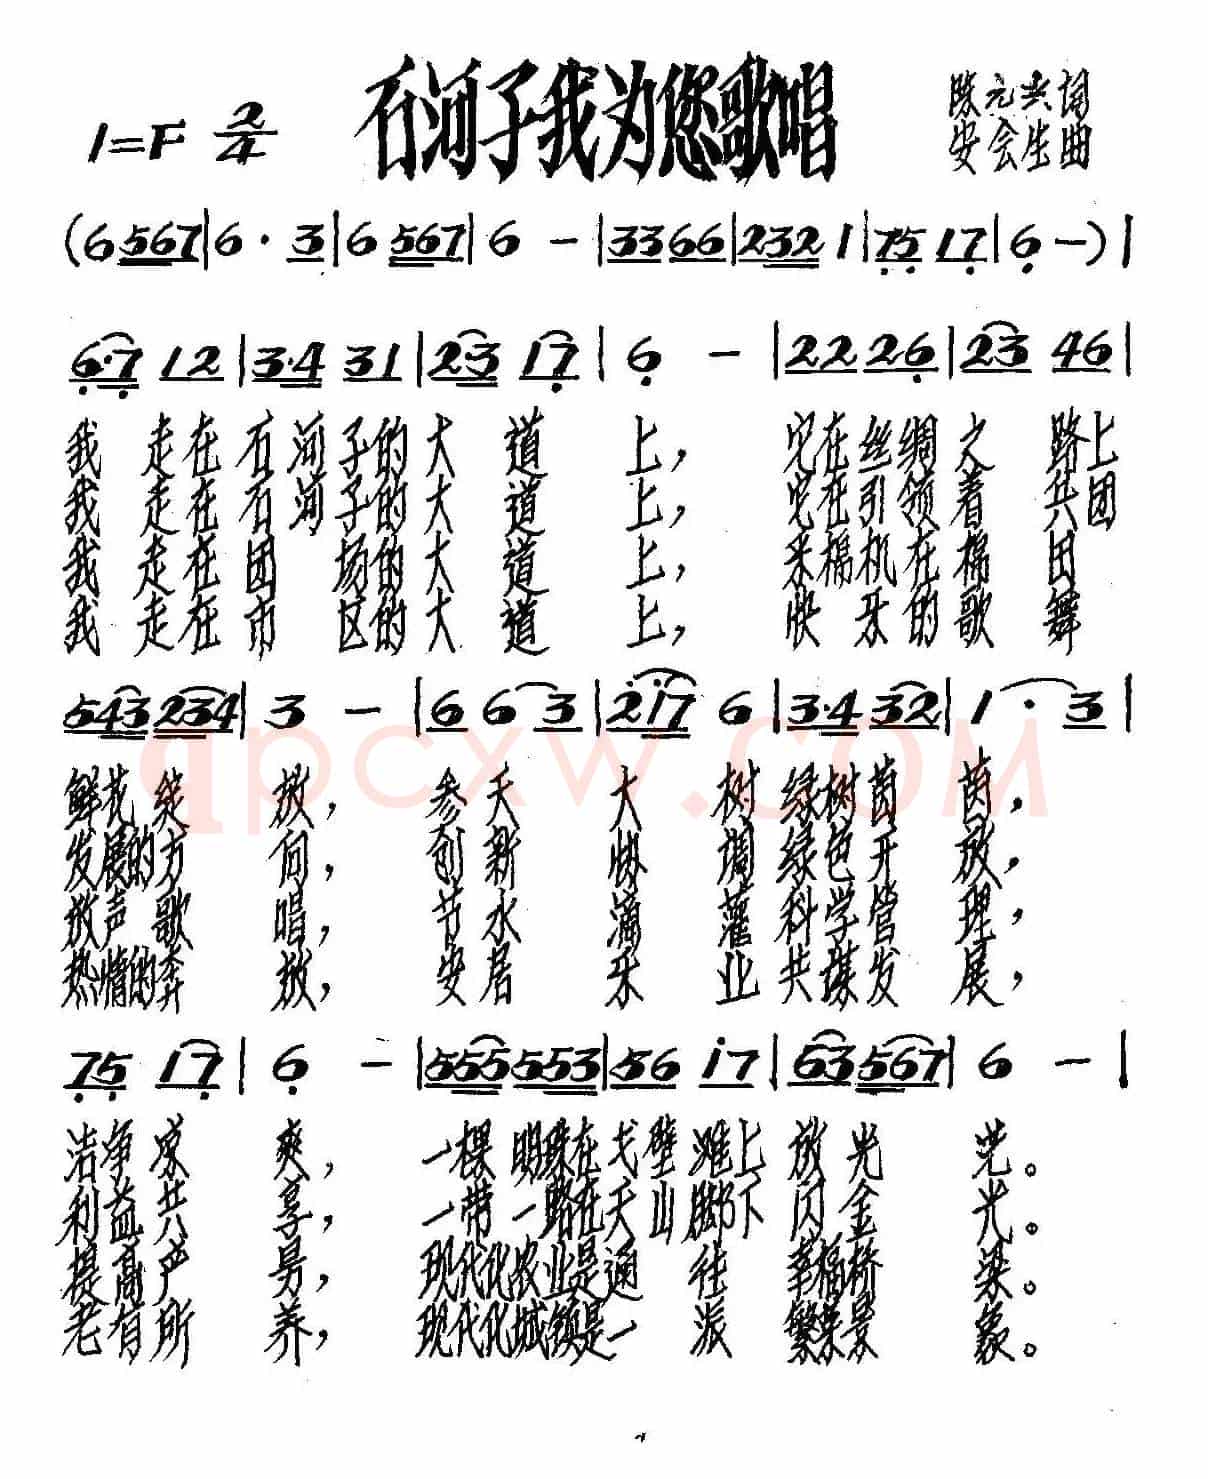 石河子我为您歌唱
1=F 2/4
陈元兴词
安会生曲
(6 567|6· 3|6 567|6 -|33 66|232 1|75 17|6 -)|
6·7 12|3·4 31|2·3 17|6 -|22 26|23 46|
我走在石河子的大道上，它在丝绸之路上
我走在石河子的大道上，它在引领着兵团
我走在团场的大道上，采棉机在棉田
我走在市区的大道上，快乐的歌舞
543 234|3 -|6 6 3|2i7 6|3·4 32|1· 3|
鲜花绽放，参天大树绿树茵茵，
发展的方向，创新协调绿色开放，
放声歌唱，节水滴灌科学管理，
热情的奔放，安居乐业共谋发展，
75 17|6 -|555 553|56 i7|63 567|6 -|
洁净凉爽，一棵明珠在戈壁滩上放光芒。
利益共享，一带一路在天山脚下闪金光。
提高产量，现代化农业是通往幸福桥梁。
老有所养，现代化城镇是一派繁荣景象。
qpcxw.com